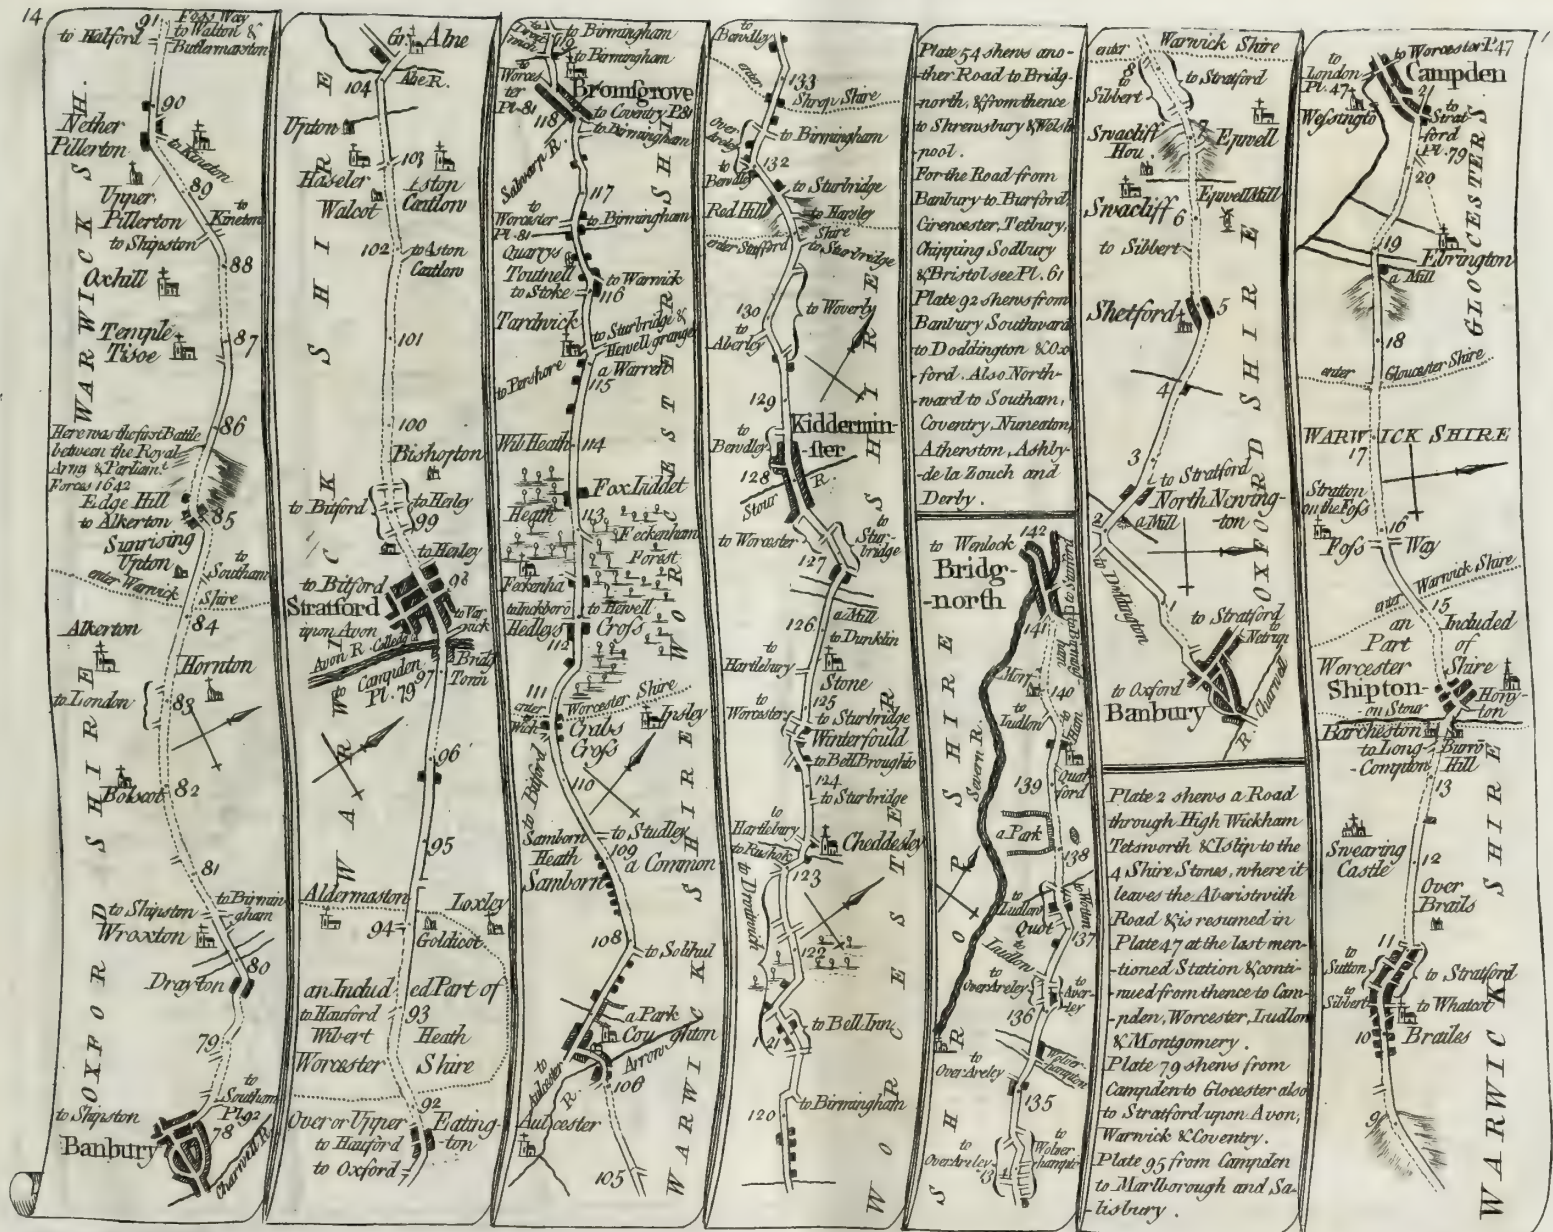 14
91
Foss Way
to Walton &
Butlermarston
to Halford
90
Nether
Pillerton
to Kineton
89
Upper
Pillerton
to Kineton
to Shipston
88
Oxhill
Temple
Tisoe
87
86
Here was the first Battle
between the Royal
Army & Parliamt.
Forces 1642
Edge Hill
to Alkerton
85
Sunrising
Upton
to
Southam
enter Warwick
Shire
84
Alkerton
Hornton
to London
83
82
Bolscot
81
to Birmin-
gham
to Shipston
Wroxton
80
Drayton
79
to
Southam
Pl. 92
to Shipston
78
Banbury
Charwell R.
WARWICK SH.
OXFORD SHIRE
Gt. Alne
Alne R.
104
Upton
103
Haseler
Aston
Cantlow
Walcot
102
to Aston
Cantlow
101
100
Bishopton
to Bitford
to Henley
99
to Henley
to Bitford
98
Stratford
upon Avon
to War-
wick
Avon R.
Colledg
Campden
Pl. 79
97
Bridg
Town
96
95
Aldermaston
Loxley
94
Goldicot
an Includ
ed Part of
to Hauford
93
Wibert
Heath
Worcester
Shire
92
Over or Upper
Eating-
ton
to Hauford
to Oxford
WARWICK SHIRE
to
Droit
wich
119
to Birmingham
to Birmingham
to
Worces
ter
Pl. 81
Bromsgrove
to Coventry P. 81
118
to Birmingham
Salwarp R.
117
to
Worcester
Pl. 81
to Birmingham
Quarrys
Toutnell
to Stoke
to Warwick
116
Tardwick
to Sturbridge &
Hewell grange
a Warren
to Pershore
115
Wib Heath
114
Fox Liddet
Heath
113
Feckenham
Forest
Feckenha
to Inckboro
to Hewell
Hedleys
Cross
112
111
enter
Worcester Shire
Crabs
Cross
Insley
to Bitford
110
Samborn
Heath
Samborn
to Studley
109
a Common
108
to Solihul
a Park
Coughton
Arrow
R.
to Aulcester
106
Aulcester
105
WORCESTER SH
WARWICK SHIRE
to
Bewdley
133
enter
Shrop Shire
Over
Areley
to Birmingham
132
to
Bewdley
to Sturbridge
Red Hill
to Hagley
enter Stafford
Shire
to Sturbridge
130
to Woverly
to
Aberley
129
to
Bewdley
Kiddermin-
-ster
128
Stour
R.
to Worcester
to
Stur-
bridge
127
a Mill
126
to Dunklin
to
Hartlebury
Stone
125
to
Worcester
to Sturbridge
Winterfould
to Bell Broughto
124
to Sturbridge
to
Hartlebury
to Rushok
Cheddesley
123
to Droitwich
122
to Bell Inn
121
120
to Birmingham
WORCESTER SHIRE
Plate 54 shews ano-
ther Road to Bridg-
north, & from thence
to Shrewsbury & Welsh
pool.
For the Road from
Banbury to Burford,
Cirencester, Tetbury,
Chipping Sodbury
& Bristol see Pl. 61
Plate 92 shews from
Banbury Southward
to Doddington & Ox-
ford. Also North-
ward to Southam,
Coventry, Nuneaton,
Atherston, Ashby-
-de la Zouch and
Derby.
142
to Wenlock
Bridg-
-north
141
Morf
140
to
Ludlow
Severn R.
139
Quat
ford
a Park
138
to
Ludlow
Quot
137
to
Ludlow
to
Over Areley
to
Aver-
ley
136
to
Over Areley
Wolver-
hampton
135
to
Wolver
hampto
Over Areley
SHROPSHIRE
enter
Warwick Shire
8
to
Sibbert
to Stratford
Swacliff
Hou.
Epwell
Epwell Mill
Swacliff
6
to Sibbert
Shetford
5
4
3
to Stratford
North Newing-
-ton
2
a Mill
to Doddington
1
to Stratford
to
Oxford
Banbury
R. Charwell
OXFORD SHIRE
Plate 2 shews a Road
through High Wickham
Tetsworth & Islip to the
4 Shire Stones, where it
leaves the Aberistwith
Road & is resumed in
Plate 47 at the last men-
-tioned Station & conti-
-nued from thence to Cam-
-pden, Worcester, Ludlow
& Montgomery.
Plate 79 shews from
Campden to Glocester also
to Stratford upon Avon,
Warwick & Coventry.
Plate 95 from Campden
to Marlborough and Sa-
-lisbury.
to Worcester P. 47
to
London
Pl. 47
Campden
21
Wessingto
to
Strat-
ford
Pl. 79
20
19
Ebrington
a Mill
18
enter
Gloucester Shire
WARWICK SHIRE
17
Stratton
on the Foss
16
Foss
Way
enter
Warwick Shire
15
an
Included
Part
of
Worcester
Shire
Shipton-
-on Stour
Honyn-
-ton
Barcheston
Burro
Hill
to Long-
-Compton
13
Swearing
Castle
12
Over
Brails
11
to
Sutton
to Stratford
to
Sibbert
to Whatcot
10
Brailes
9
GLOCESTERS.
WARWICK SHIRE